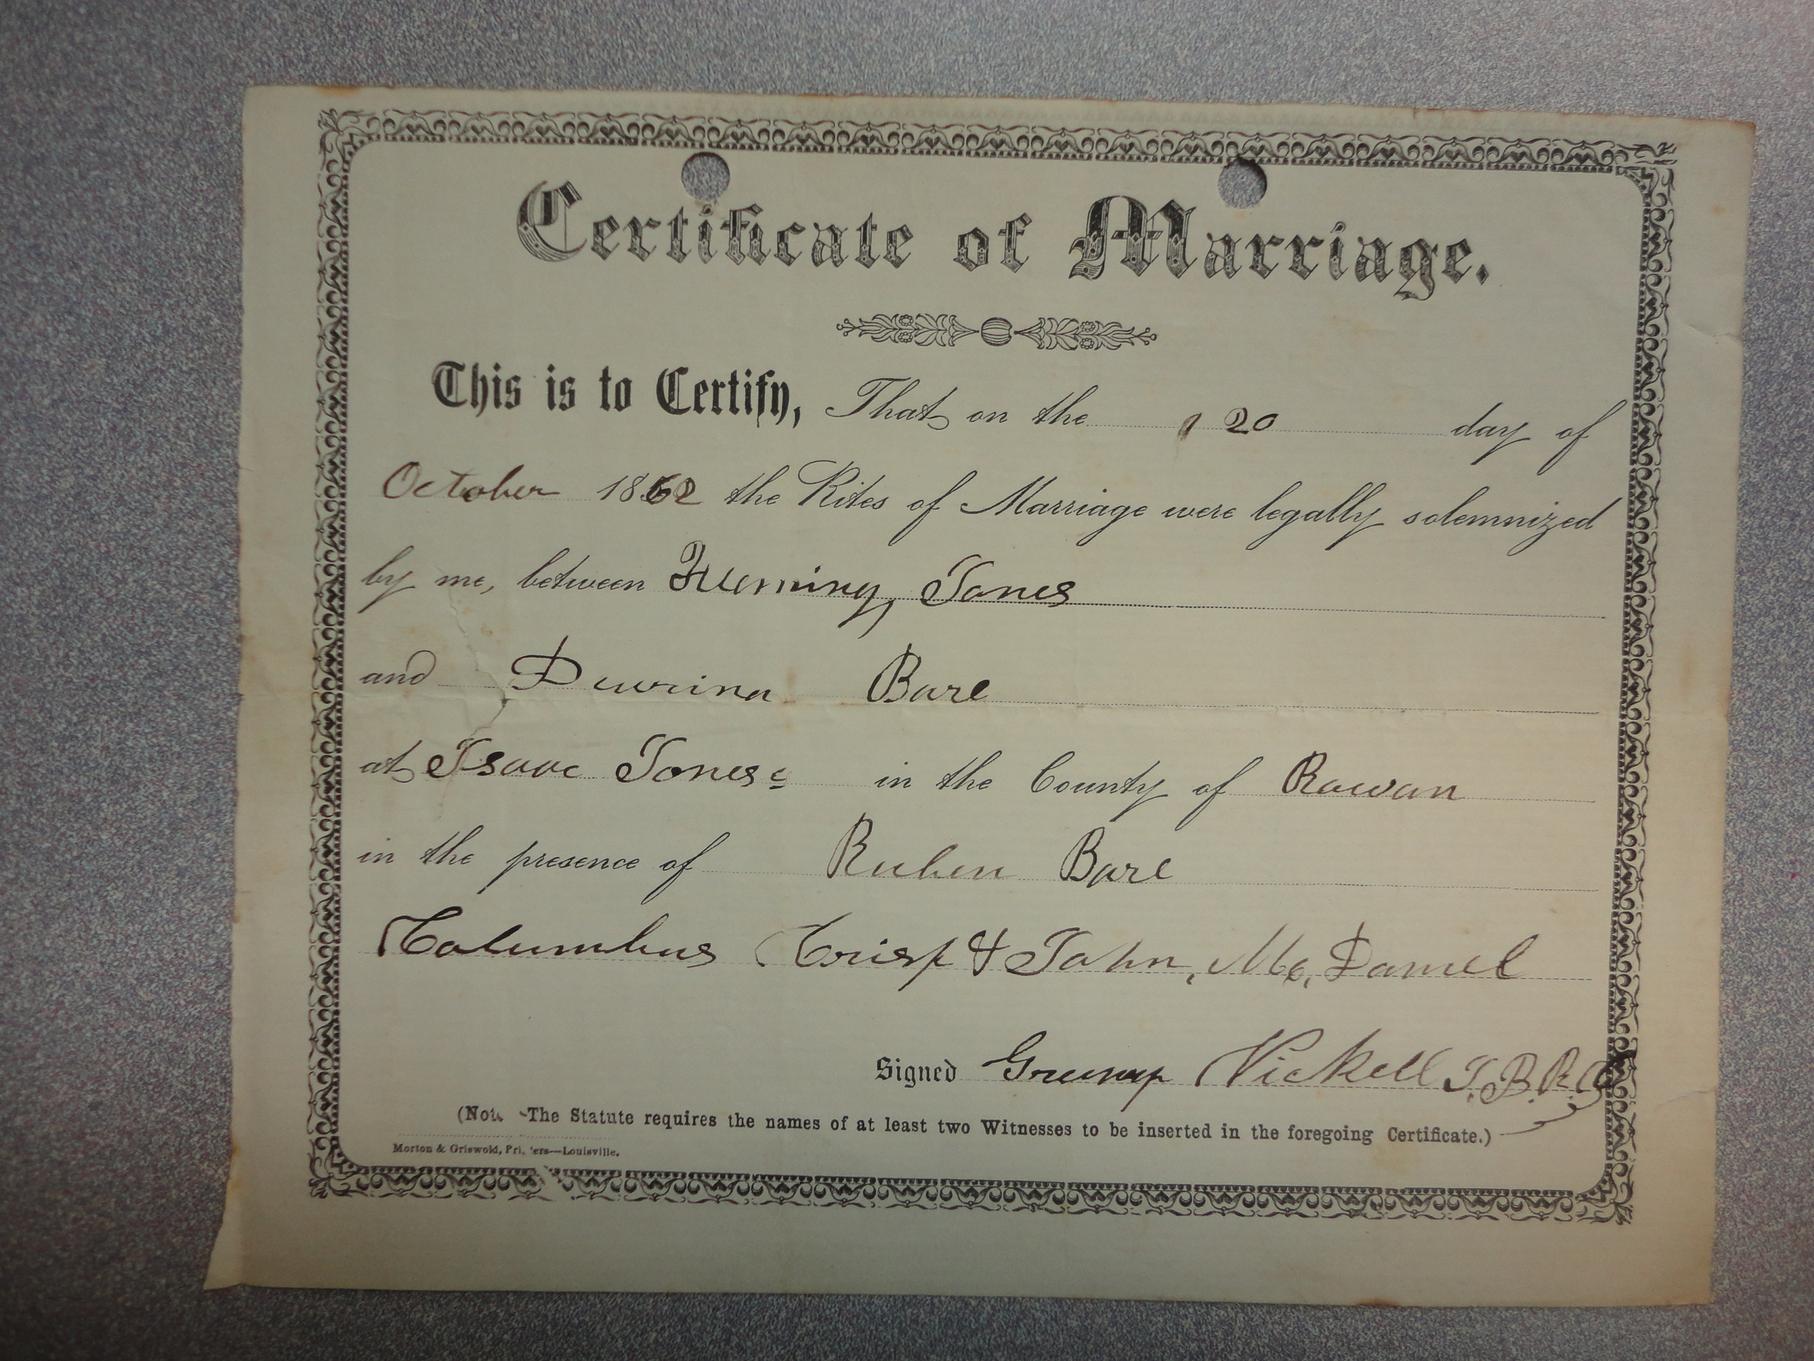 Certificate of Marriage.
This is to Certify, That on the 20 day of
October 1862 the Rites of Marriage were legally solemnized
by me, between Fleming Jones
and Bare
at Isaac Joneses in the County of Rowan
in the presence of Ruben Bare
Columbus Crisp & John, Mc, Daniel
Signed Nickell J.B.R.C
(Note The Statute requires the names of at least two Witnesses to be inserted in the foregoing Certificate.)
Morton & Griswold, Printers—Louisville.